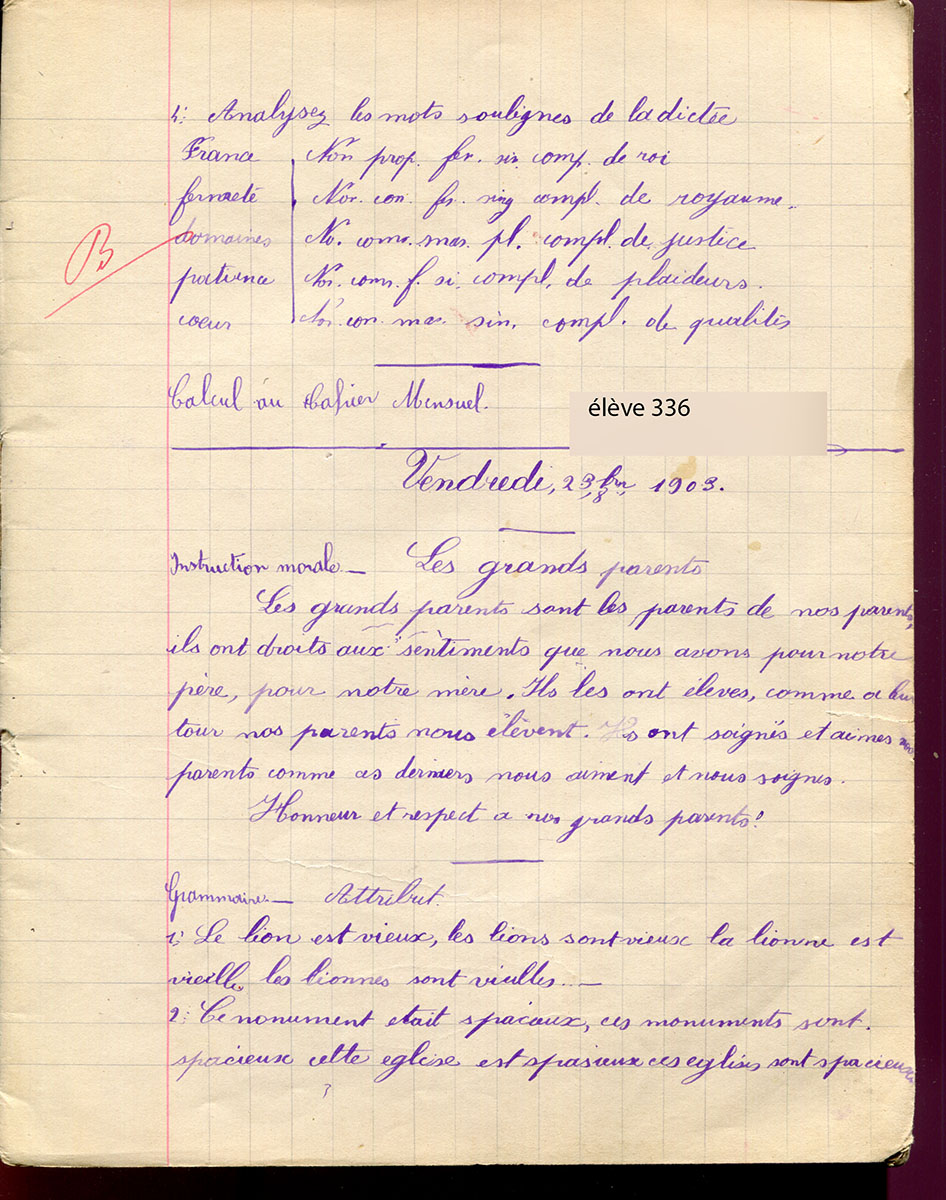 4: Analysez les mots soulignés de la dictée
France Nom prop. fem. sin. comp. de roi
fermeté Nor. con. fe. sing compl. de royaume.
domaines No. com. mas. pl. compl. de justice
B
patience No. com. f. si. compl. de plaideurs.
coeur No. con. mas. sin. compl. de qualités
Calcul au Cahier Mensuel.
élève 336
Vendredi, 23 8bre 1903.
Instruction morale – Les grands parents
Les grands parents sont les parents de nos parents,
ils ont droits aux sentiments que nous avons pour notre
père, pour notre mère. Ils les ont éleves, comme a leur
tour nos parents nous élèvent. Ils ont soignés et aimes nos
parents comme ces derniers nous aiment et nous soignes.
Honneur et respect a nos grands parents!
Grammaire – Attribut.
1: Le lion est vieux, les lions sont vieux la lionne est
vieille les lionnes sont vieilles. –
2: Ce monument etait spacieux, ces monuments sont.
spacieux cette eglise est spasieux ces eglises sont spacieuses